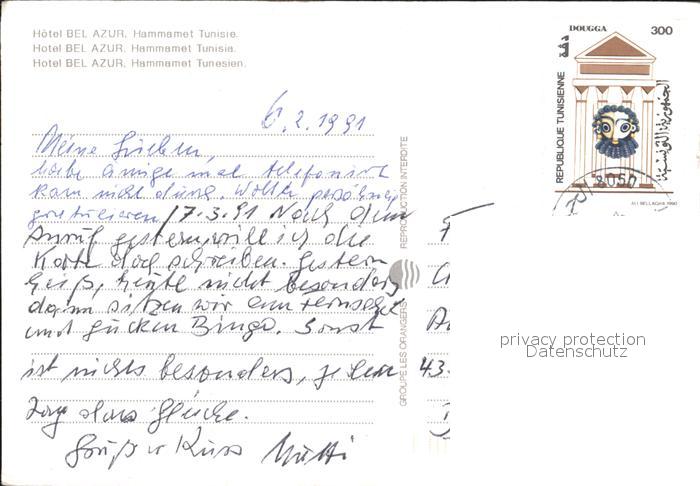 Hôtel BEL AZUR. Hammamet Tunisie.
Hotel BEL AZUR. Hammamet Tunisia.
Hotel BEL AZUR. Hammamet Tunesien.
DOUGGA
300
دقة
REPUBLIQUE TUNISIENNE
الجمهورية التونسية
ALI BELLAGHA 1990
6.2.1991
Meine Lieben,
habe einige mal telefonisch
kam nicht durch. Wollte persönlich
gratulieren. 17.3.91 Nach dem
Anruf gestern, will ich die
Karte doch schreiben. Gestern
heiß, heute nicht besonders
dann sitzen wir am Fernseher
und gucken Bingo. Sonst
ist nichts besonders, jeden
Tag das gleiche.
Gruß u Kuss Mutti
REPRODUCTION INTERDITE
GROUPE LES ORANGERS
43.
privacy protection
Datenschutz